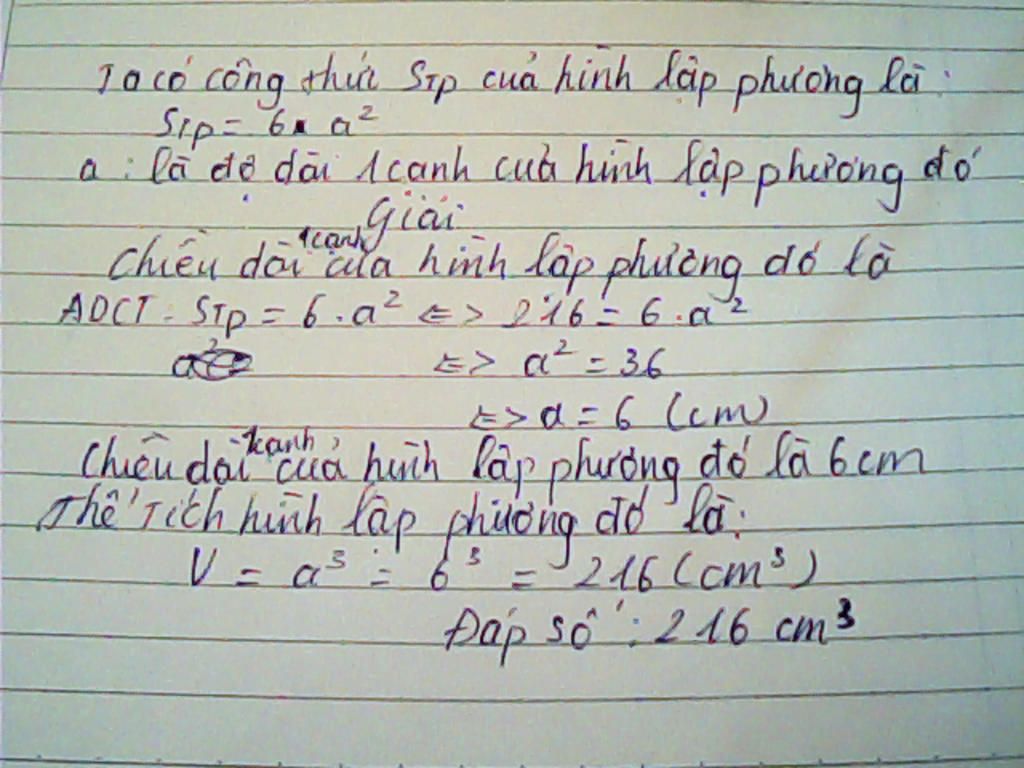 Ta có công thức STP của hình lập phương là:
STP = 6. a²
a : là độ dài 1 cạnh của hình lập phương đó
Giải
Chiều dài 1 cạnh của hình lập phương đó là
ADCT: STP = 6 . a² <=> 216 = 6 . a²
<=> a² = 36
<=> a = 6 (cm)
Chiều dài 1 cạnh của hình lập phương đó là 6cm
Thể tích hình lập phương đó là:
V = a³ = 6³ = 216 (cm³)
Đáp số : 216 cm³